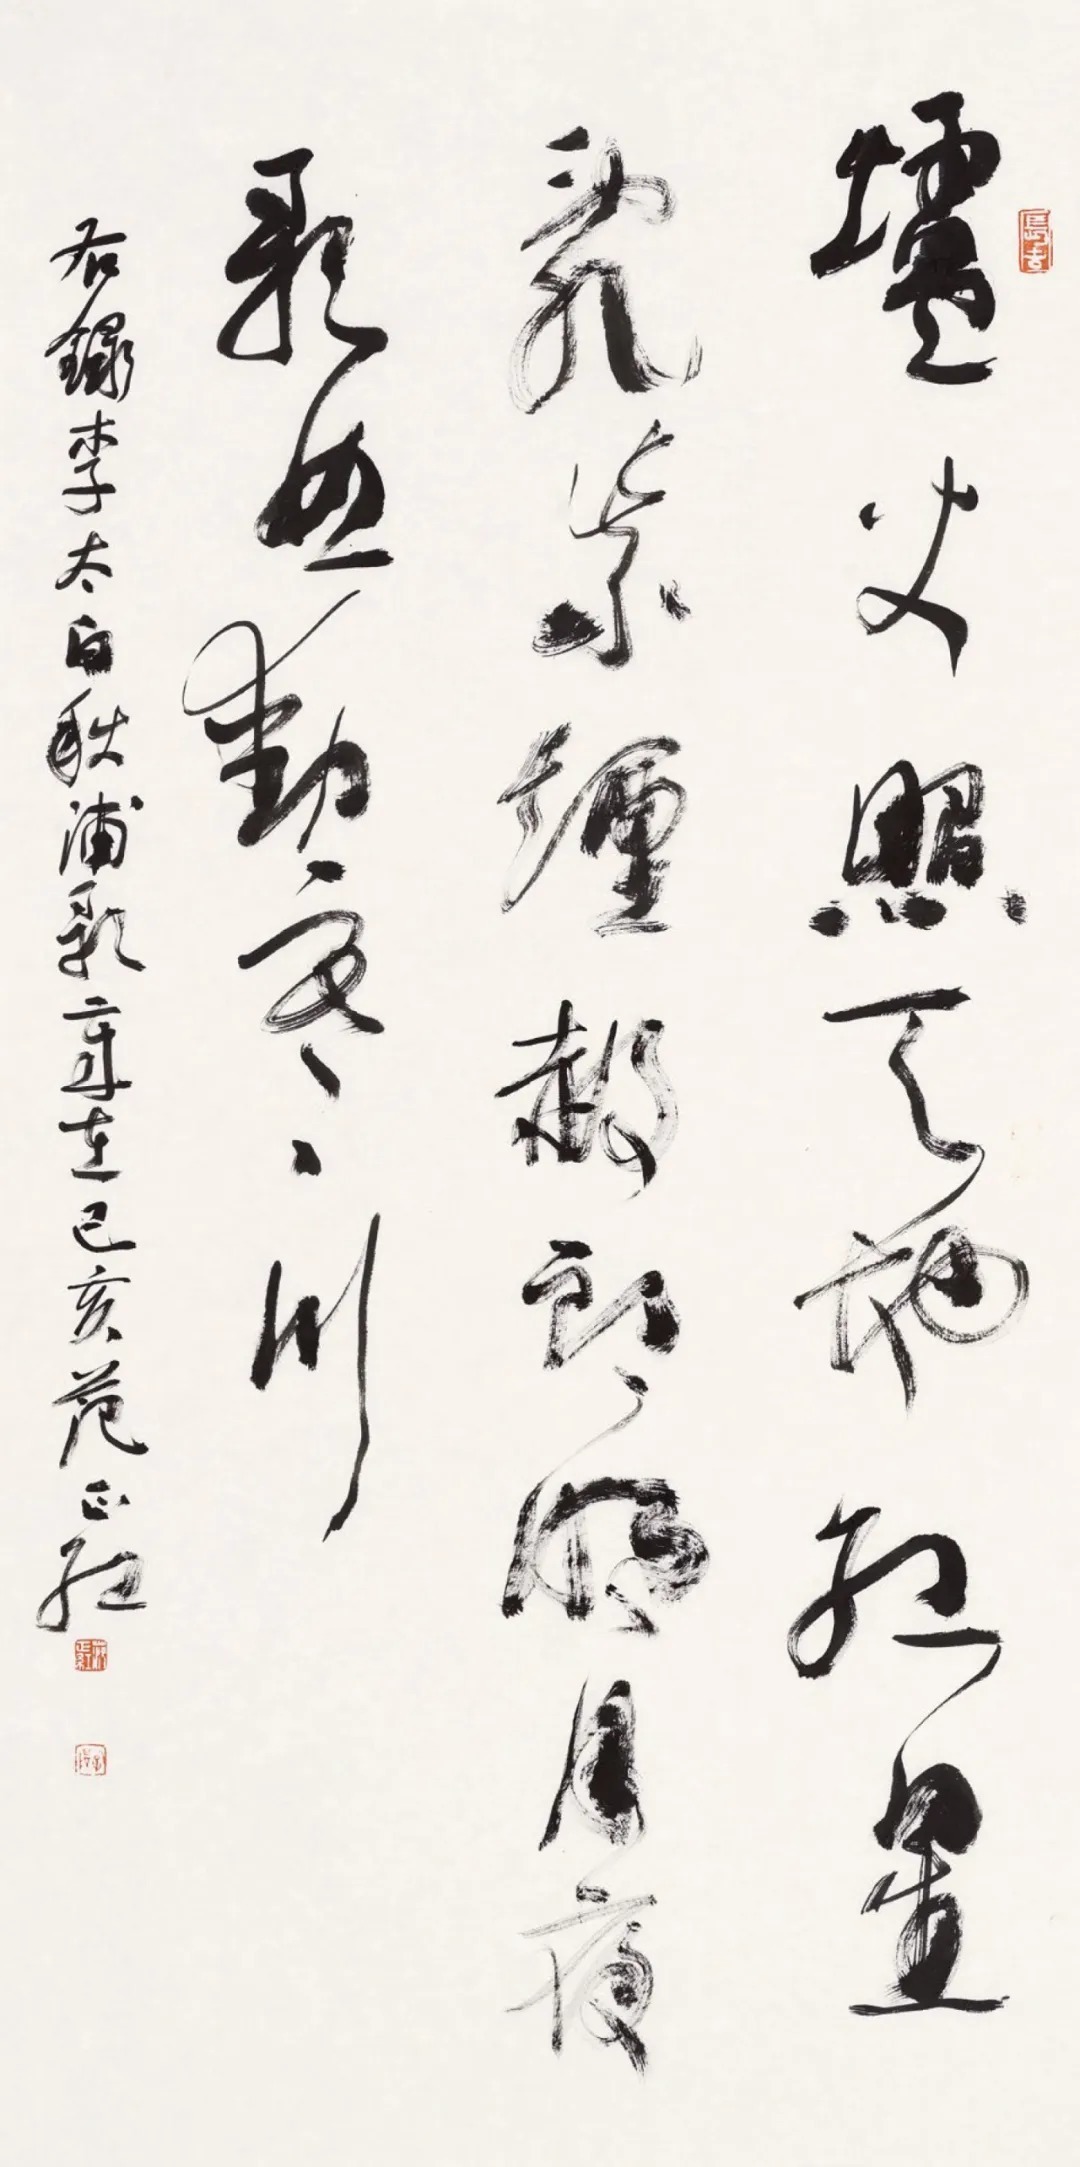 爐火照天地紅星
亂紫煙赧郎明月夜
歌曲動寒川
右錄李太白秋浦歌章在己亥范正紅